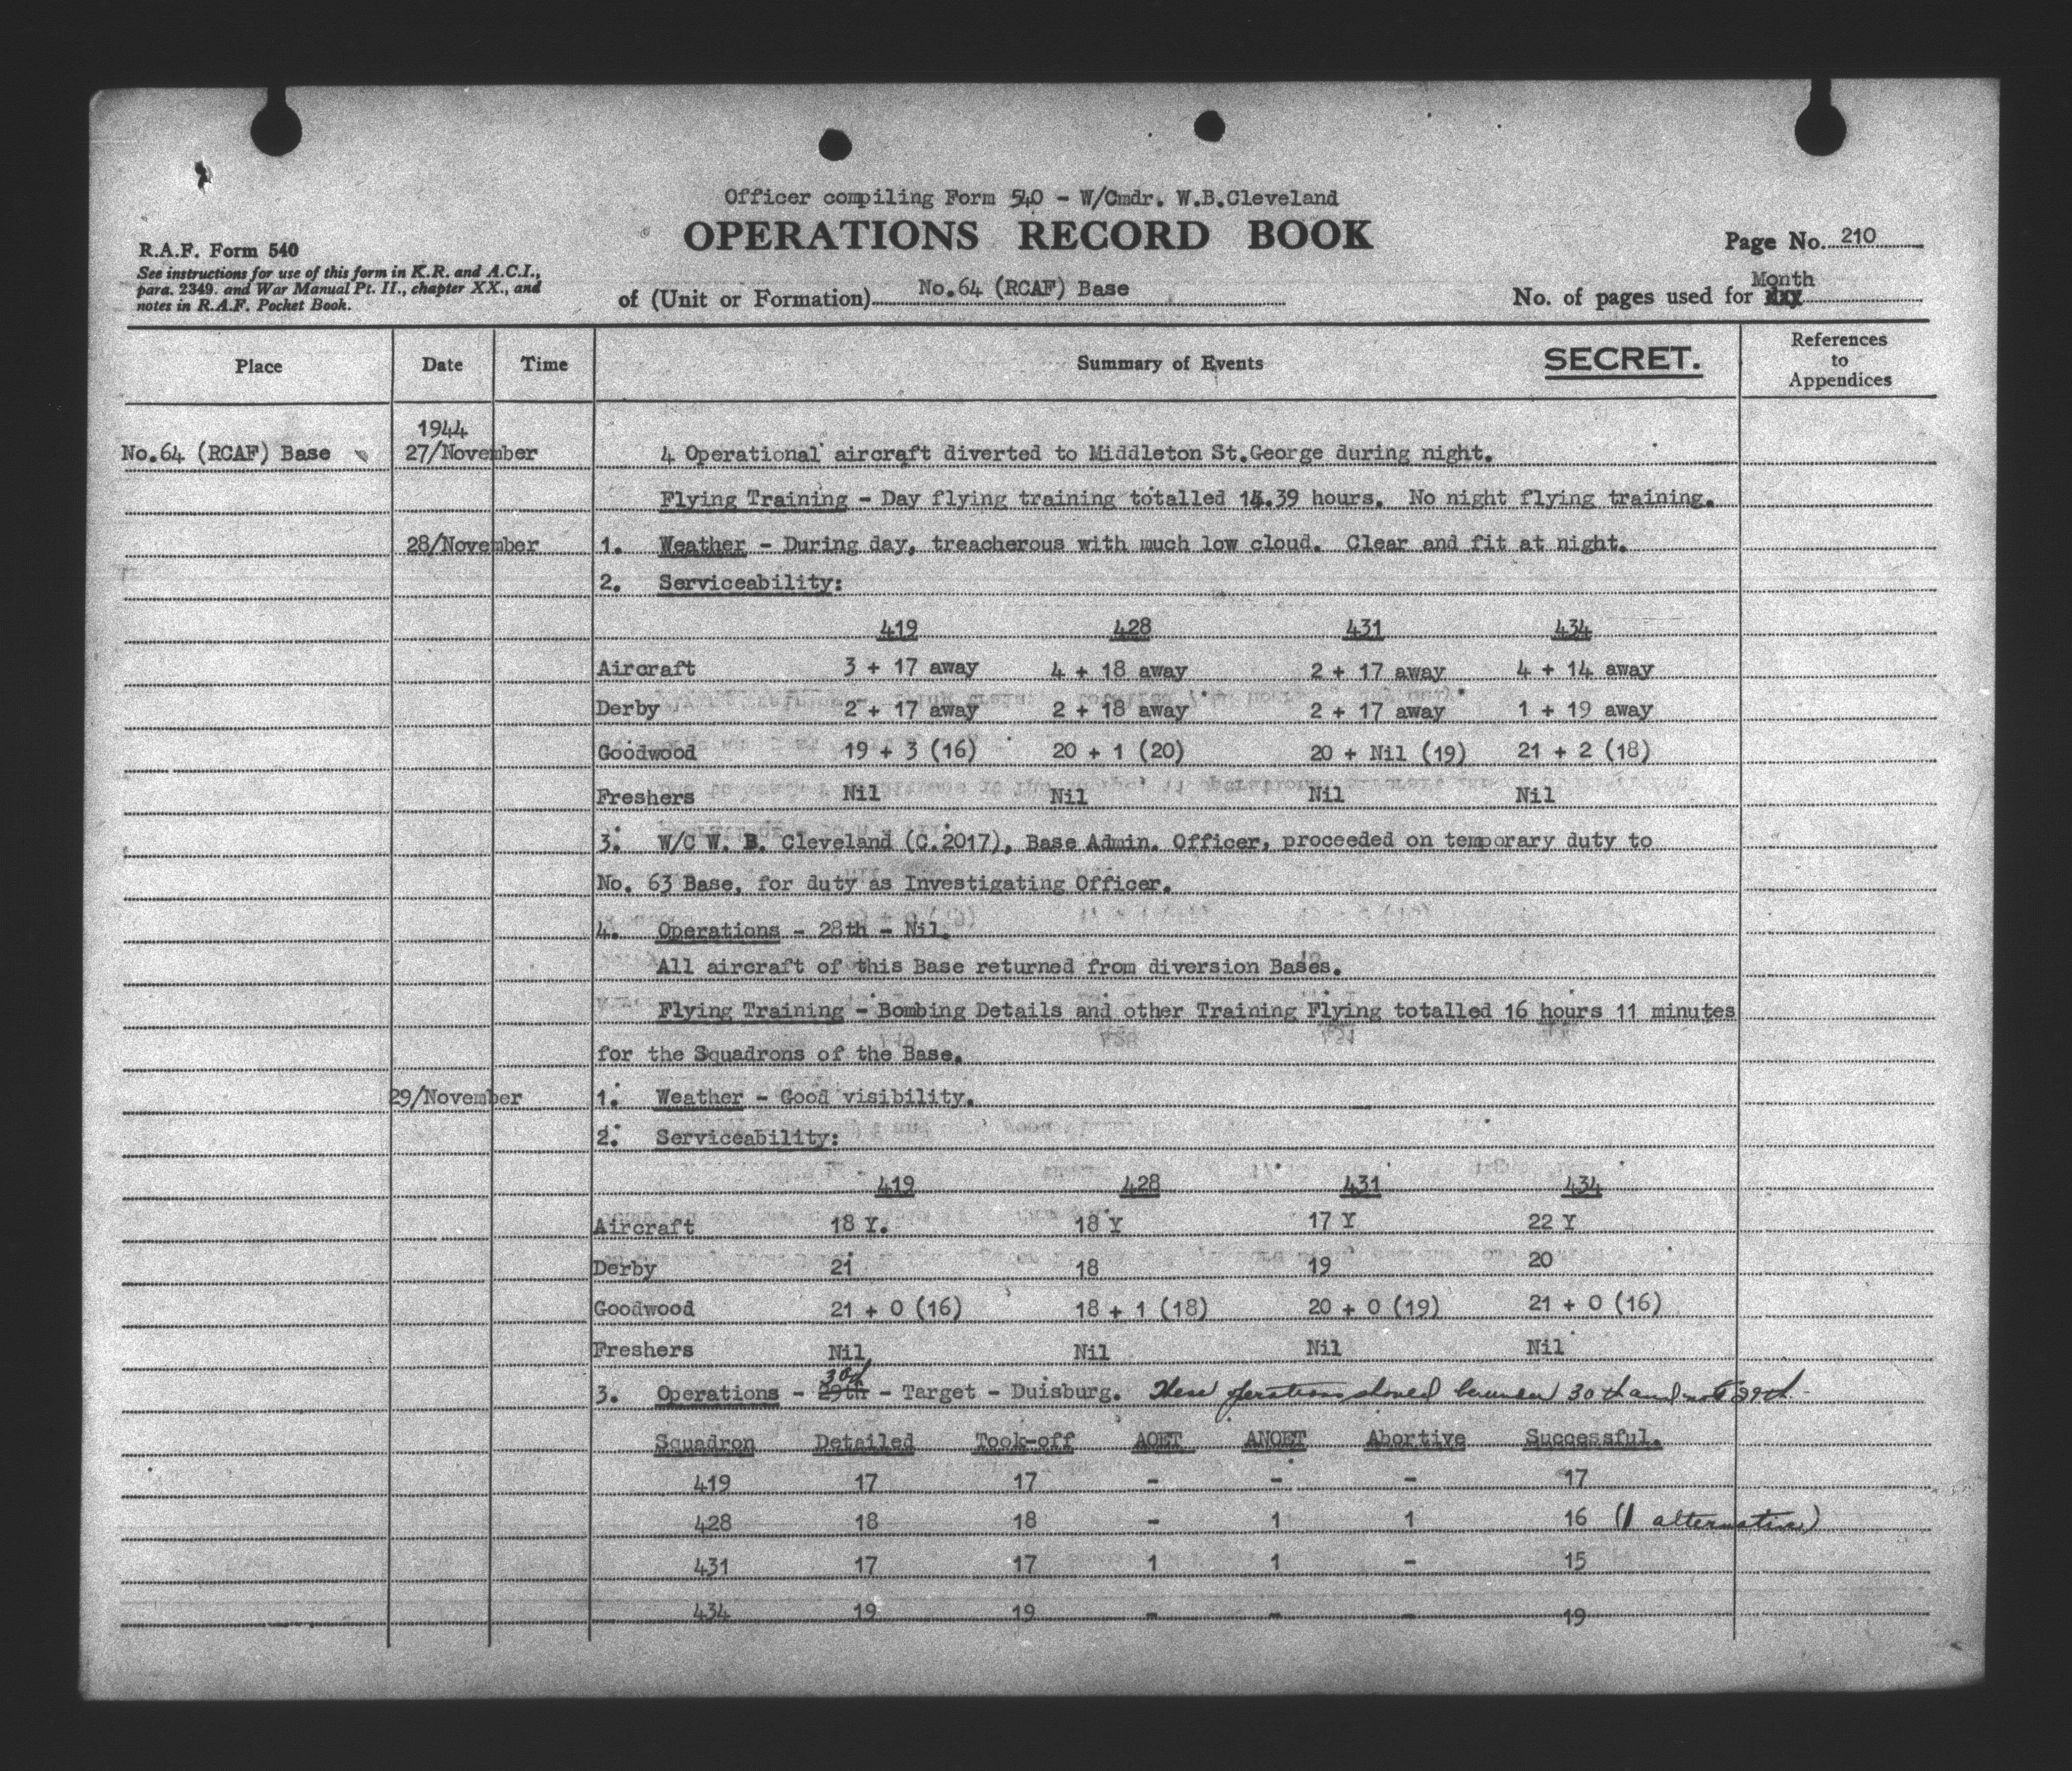 Officer compiling Form 540 - W/Cmdr. W.B.Cleveland
OPERATIONS RECORD BOOK
R.A.F. Form 540
See instructions for use of this form in K.R. and A.C.I.,
para. 2349. and War Manual Pt. II., chapter XX., and
notes in R.A.F. Pocket Book.
Page No. 210
of (Unit or Formation) No.64 (RCAF) Base
Month
No. of pages used for day
Place Date Time Summary of Events SECRET. References to Appendices
1944
No.64 (RCAF) Base 27/November 4 Operational aircraft diverted to Middleton St.George during night.
Flying Training - Day flying training totalled 14.39 hours. No night flying training.
28/November 1. Weather - During day, treacherous with much low cloud. Clear and fit at night.
2. Serviceability:
419 428 431 434
Aircraft 3 + 17 away 4 + 18 away 2 + 17 away 4 + 14 away
Derby 2 + 17 away 2 + 18 away 2 + 17 away 1 + 19 away
Goodwood 19 + 3 (16) 20 + 1 (20) 20 + Nil (19) 21 + 2 (18)
Freshers Nil Nil Nil Nil
3. W/C W. B. Cleveland (C.2017), Base Admin. Officer, proceeded on temporary duty to
No. 63 Base, for duty as Investigating Officer.
4. Operations - 28th - Nil.
All aircraft of this Base returned from diversion Bases.
Flying Training - Bombing Details and other Training Flying totalled 16 hours 11 minutes
for the Squadrons of the Base.
29/November 1. Weather - Good visibility.
2. Serviceability:
419 428 431 434
Aircraft 18 Y. 18 Y 17 Y 22 Y
Derby 21 18 19 20
Goodwood 21 + 0 (16) 18 + 1 (18) 20 + 0 (19) 21 + 0 (16)
Freshers Nil Nil Nil Nil
3. Operations - 29th 30th - Target - Duisburg. These operations should be under 30th and not 29th.
Squadron Detailed Took-off AOET ANOET Abortive Successful.
419 17 17 - - - 17
428 18 18 - 1 1 16 (1 alternative)
431 17 17 1 1 - 15
434 19 19 - - - 19